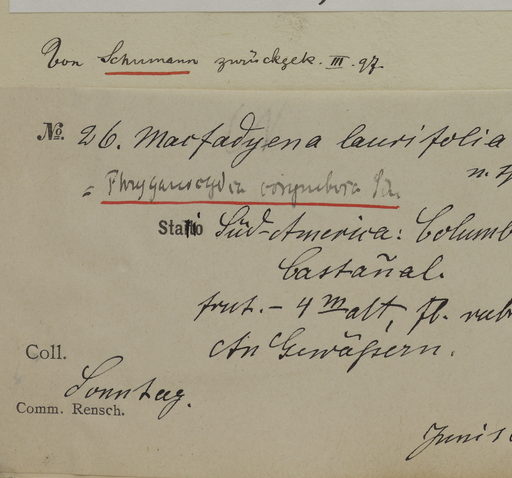 Von Schumann zurückgek. III. 97.
No. 26. Macfadyena laurifolia
n. sp
= Phryganocydia corymbosa Sch.
Statio Süd-America: Columb
Castañal.
frut. - 4 m alt, fl. rub
An Gewäßern.
Coll.
Sonntag.
Comm. Rensch.
Juni